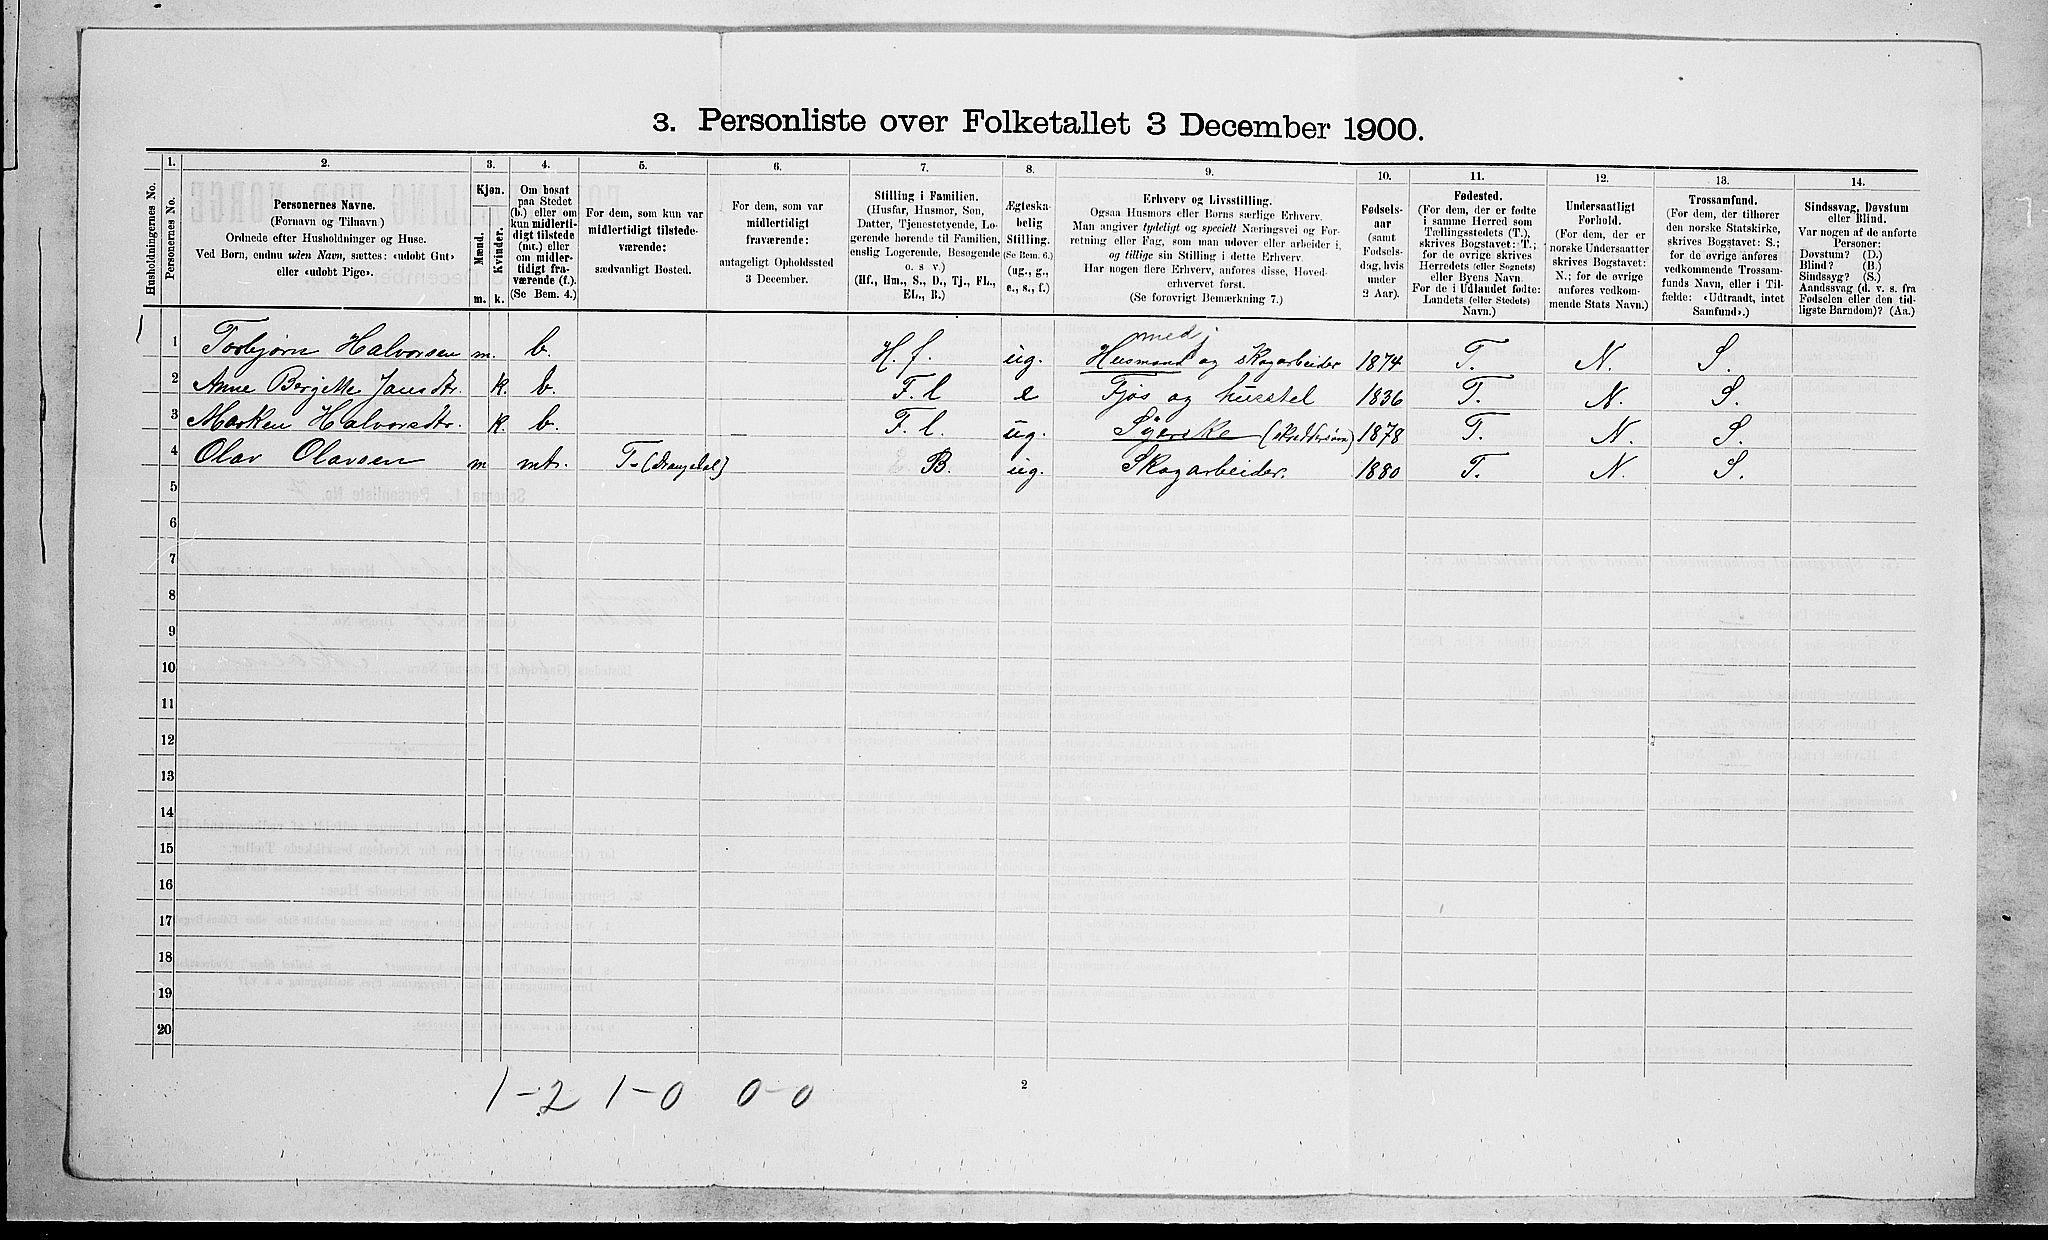 3. Personliste over Folketallet 3 December 1900.
Husholdningernes No.
1.
Personernes No.
2.
Personernes Navne.
(Fornavn og Tilnavn)
Ordnede efter Husholdninger og Huse.
Ved Børn, endnu uden Navn, sættes: «udøbt Gut»
eller «udøbt Pige».
3.
Kjøn.
Mænd.
Kvinder.
m. k.
4.
Om bosat
paa Stedet
(b.) eller om
kun midlerti-
digt tilstede
(mt.) eller
om midler-
tidigt fra-
værende (f.).
(Se Bem. 4.)
5.
For dem, som kun var
midlertidigt tilstede-
værende:
sædvanligt Bosted.
6.
For dem, som var
midlertidigt
fraværende:
antageligt Opholdssted
3 December.
7.
Stilling i Familien.
(Husfar, Husmor, Søn,
Datter, Tjenestetyende, Lo-
gerende hørende til Familien,
enslig Logerende, Besøgende
o. s v.)
(Hf., Hm., S., D., Tj., FL.,
EL., B.)
8.
Ægteska-
belig
Stilling.
(Se Bem. 6.)
(ug., g.,
e., s., f.)
9.
Erhverv og Livsstilling.
Ogsaa Husmors eller Børns særlige Erhverv.
Man angiver tydeligt og specielt Næringsvei og For-
retning eller Fag, som man udøver eller arbeider i,
og tillige sin Stilling i dette Erhverv.
Har nogen flere Erhverv, anføres disse, Hoved-
erhvervet først.
(Se forøvrigt Bemærkning 7.)
10.
Fødsels-
aar
(samt
Fødsels-
dag, hvis
under
2 Aar).
11.
Fødested.
(For dem, der er fødte
i samme Herred som
Tællingsstedets (T.),
skrives Bogstavet: T.;
for de øvrige skrives
Herredets (eller Sognets)
eller Byens Navn.
For de i Udlandet fødte:
Landets (eller Stedets)
Navn.)
12.
Undersaatligt
Forhold.
(For dem, der er
norske Undersaatter
skrives Bogstavet:
N.; for de øvrige
anføres vedkom-
mende Stats Navn.)
13.
Trossamfund.
(For dem, der tilhører
den norske Statskirke,
skrives Bogstavet: S.;
for de øvrige anføres
vedkommende Trossam-
funds Navn, eller i Til-
fælde: «Udtraadt, intet
Samfund».)
14.
Sindssvag, Døvstum
eller Blind.
Var nogen af de anførte
Personer:
Døvstum? (D.)
Blind? (B.)
Sindssyg? (S.)
Aandssvag (d. v. s. fra
Fødselen eller den tid-
ligste Barndom)? (Aa.)
medj
1 1 Torbjørn Halvorsen m. b. H.f. ug. Husmand og skogarbeider 1874 T. N. S.
2 Anne Bergitte Jansdtr. k. b. F.l e Fjøs og husstel 1836 T. N. S.
3 Marken Halvorsdtr. k b. F.l. ug. Syerske (skreddersøm) 1878 T. N. S.
4 Olav Olavsen m mt. T. (Drangedal) B. ug. Skogarbeider. 1880 T. N S.
5
6
7
8
9
10
11
12
13
14
15
16
17
18
19
20
1-2 1-0 0-0
2